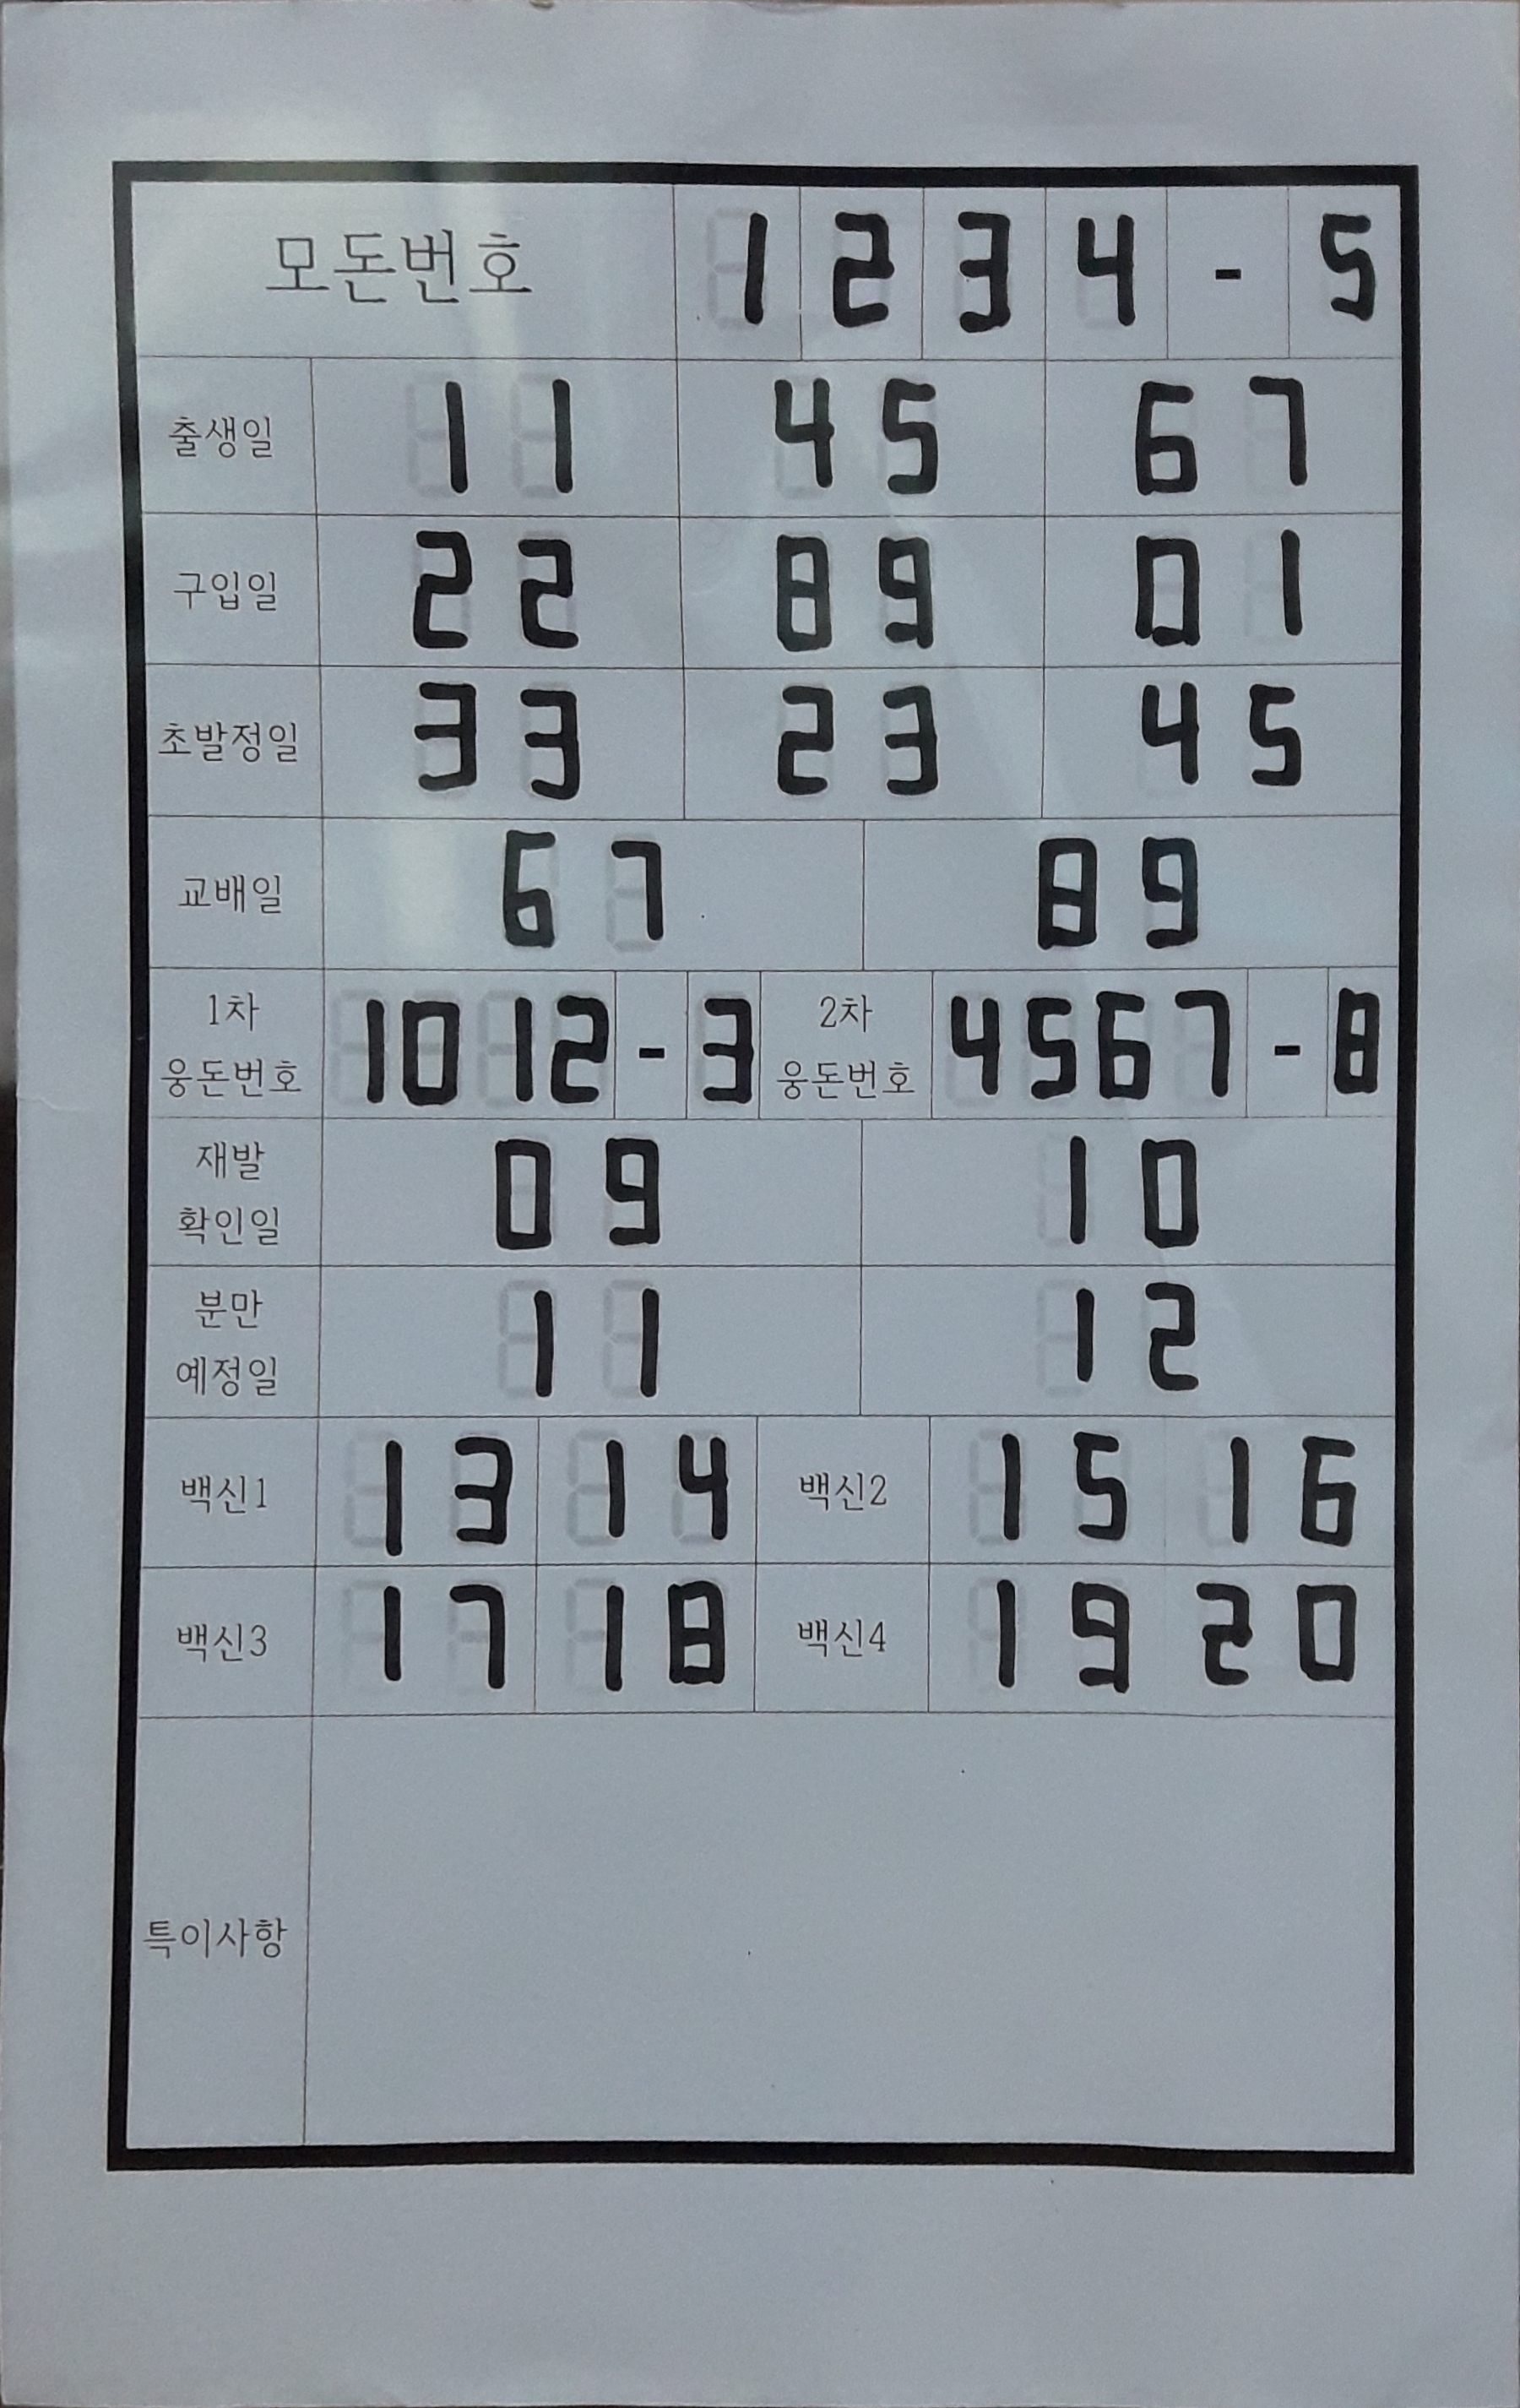 모돈번호 1 2 3 4 - 5
출생일 1 1 4 5 6 7
구입일 2 2 8 9 0 1
초발정일 3 3 2 3 4 5
교배일 6 7 8 9
1차 웅돈번호 1012 - 3 2차 웅돈번호 4567 - 8
재발 확인일 0 9 1 0
분만 예정일 1 1 1 2
백신1 1 3 1 4 백신2 1 5 1 6
백신3 1 7 1 8 백신4 1 9 2 0
특이사항